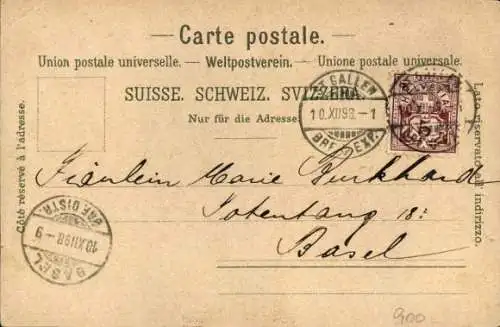 Carte postale.
Union postale universelle. — Weltpostverein. — Unione postale universale.
SUISSE. SCHWEIZ. SVIZZERA.
Nur für die Adresse.
Côté réservé à l'adresse.
Lato riservato all' indirizzo.
ST. GALLEN
10.XII98.-1
BRF. EXP.
HELVETIA
5
Fräulein Marie Burkhardt
Totentang 18:
Basel
BASEL
10.XII98-9
BRF. DISTR.
900